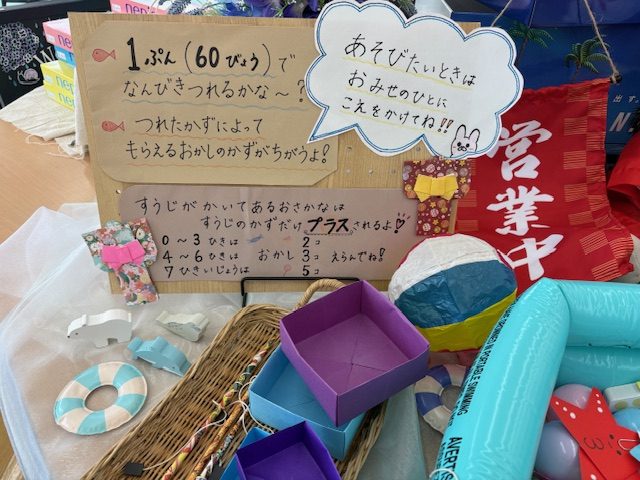 1ぷん(60びょう)で
なんびきつれるかな～?
つれたかずによって
もらえるおかしのかずがちがうよ!
あそびたいときは
おみせのひとに
こえをかけてね!!
すうじがかいてあるおさかなは
すうじのかずだけプラスされるよ!
0～3ひきは 2コ
4～6ひきは おかし 3コ えらんでね!
7ひきいじょうは 5コ
営業中
3